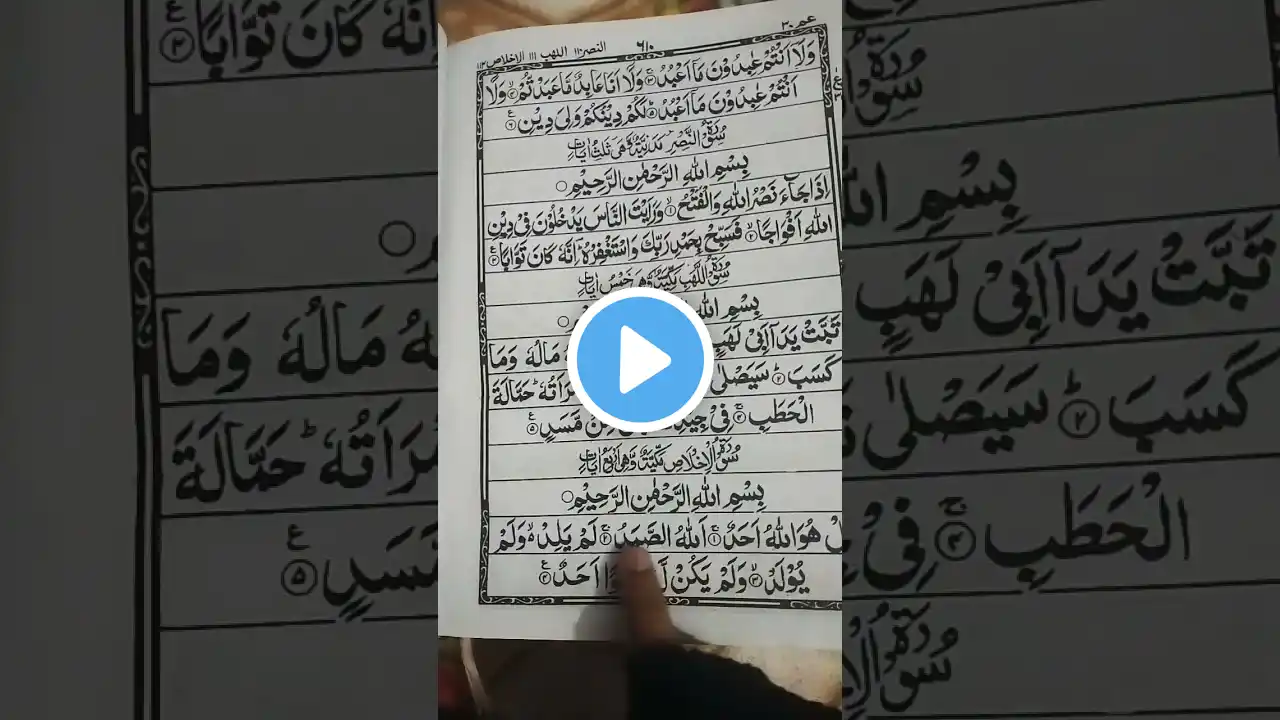 عم ٣٠
٦١٠
النصر ١١٠ اللهب ١١١ الاخلاص ١١٢
وَلَآ اَنْتُمْ عٰبِدُوْنَ مَآ اَعْبُدُ ۚ﴿۳﴾ وَلَآ اَنَا عَابِدٌ مَّا عَبَدْتُّمْ ۙ﴿۴﴾ وَلَآ
اَنْتُمْ عٰبِدُوْنَ مَآ اَعْبُدُ ؕ﴿۵﴾ لَكُمْ دِيْنُكُمْ وَلِىَ دِيْنِ ﴿۶﴾
سُوْرَةُ النَّصْرِ مَدَنِيَّةٌ وَّهِىَ ثَلٰثُ اٰيَاتٍ
بِسْمِ اللّٰهِ الرَّحْمٰنِ الرَّحِيْمِ ○
اِذَا جَآءَ نَصْرُ اللّٰهِ وَالْفَتْحُ ۙ﴿۱﴾ وَرَاَيْتَ النَّاسَ يَدْخُلُوْنَ فِىْ دِيْنِ
اللّٰهِ اَفْوَاجًا ۙ﴿۲﴾ فَسَبِّحْ بِحَمْدِ رَبِّكَ وَاسْتَغْفِرْهُ ؕ اِنَّهٗ كَانَ تَوَّابًا ﴿۳﴾
سُوْرَةُ اللَّهَبِ مَكِّيَّةٌ وَّهِىَ خَمْسُ اٰيَاتٍ
بِسْمِ اللّٰهِ
تَبَّتْ يَدَآ اَبِىْ لَهَبٍ مَالُهٗ وَمَا
كَسَبَ ؕ﴿۲﴾ سَيَصْلٰى حَمَّالَةَ
الْحَطَبِ ۚ﴿۴﴾ فِىْ مِّنْ مَّسَدٍ ﴿۵﴾
سُوْرَةُ الْاِخْلَاصِ مَكِّيَّةٌ وَّهِىَ اَرْبَعُ اٰيَاتٍ
بِسْمِ اللّٰهِ الرَّحْمٰنِ الرَّحِيْمِ ○
هُوَ اللّٰهُ اَحَدٌ ۚ﴿۱﴾ اَللّٰهُ الصَّمَدُ ۚ﴿۲﴾ لَمْ يَلِدْ ۙ وَلَمْ
يُوْلَدْ ۙ﴿۳﴾ وَلَمْ يَكُنْ اَحَدٌ ﴿۴﴾